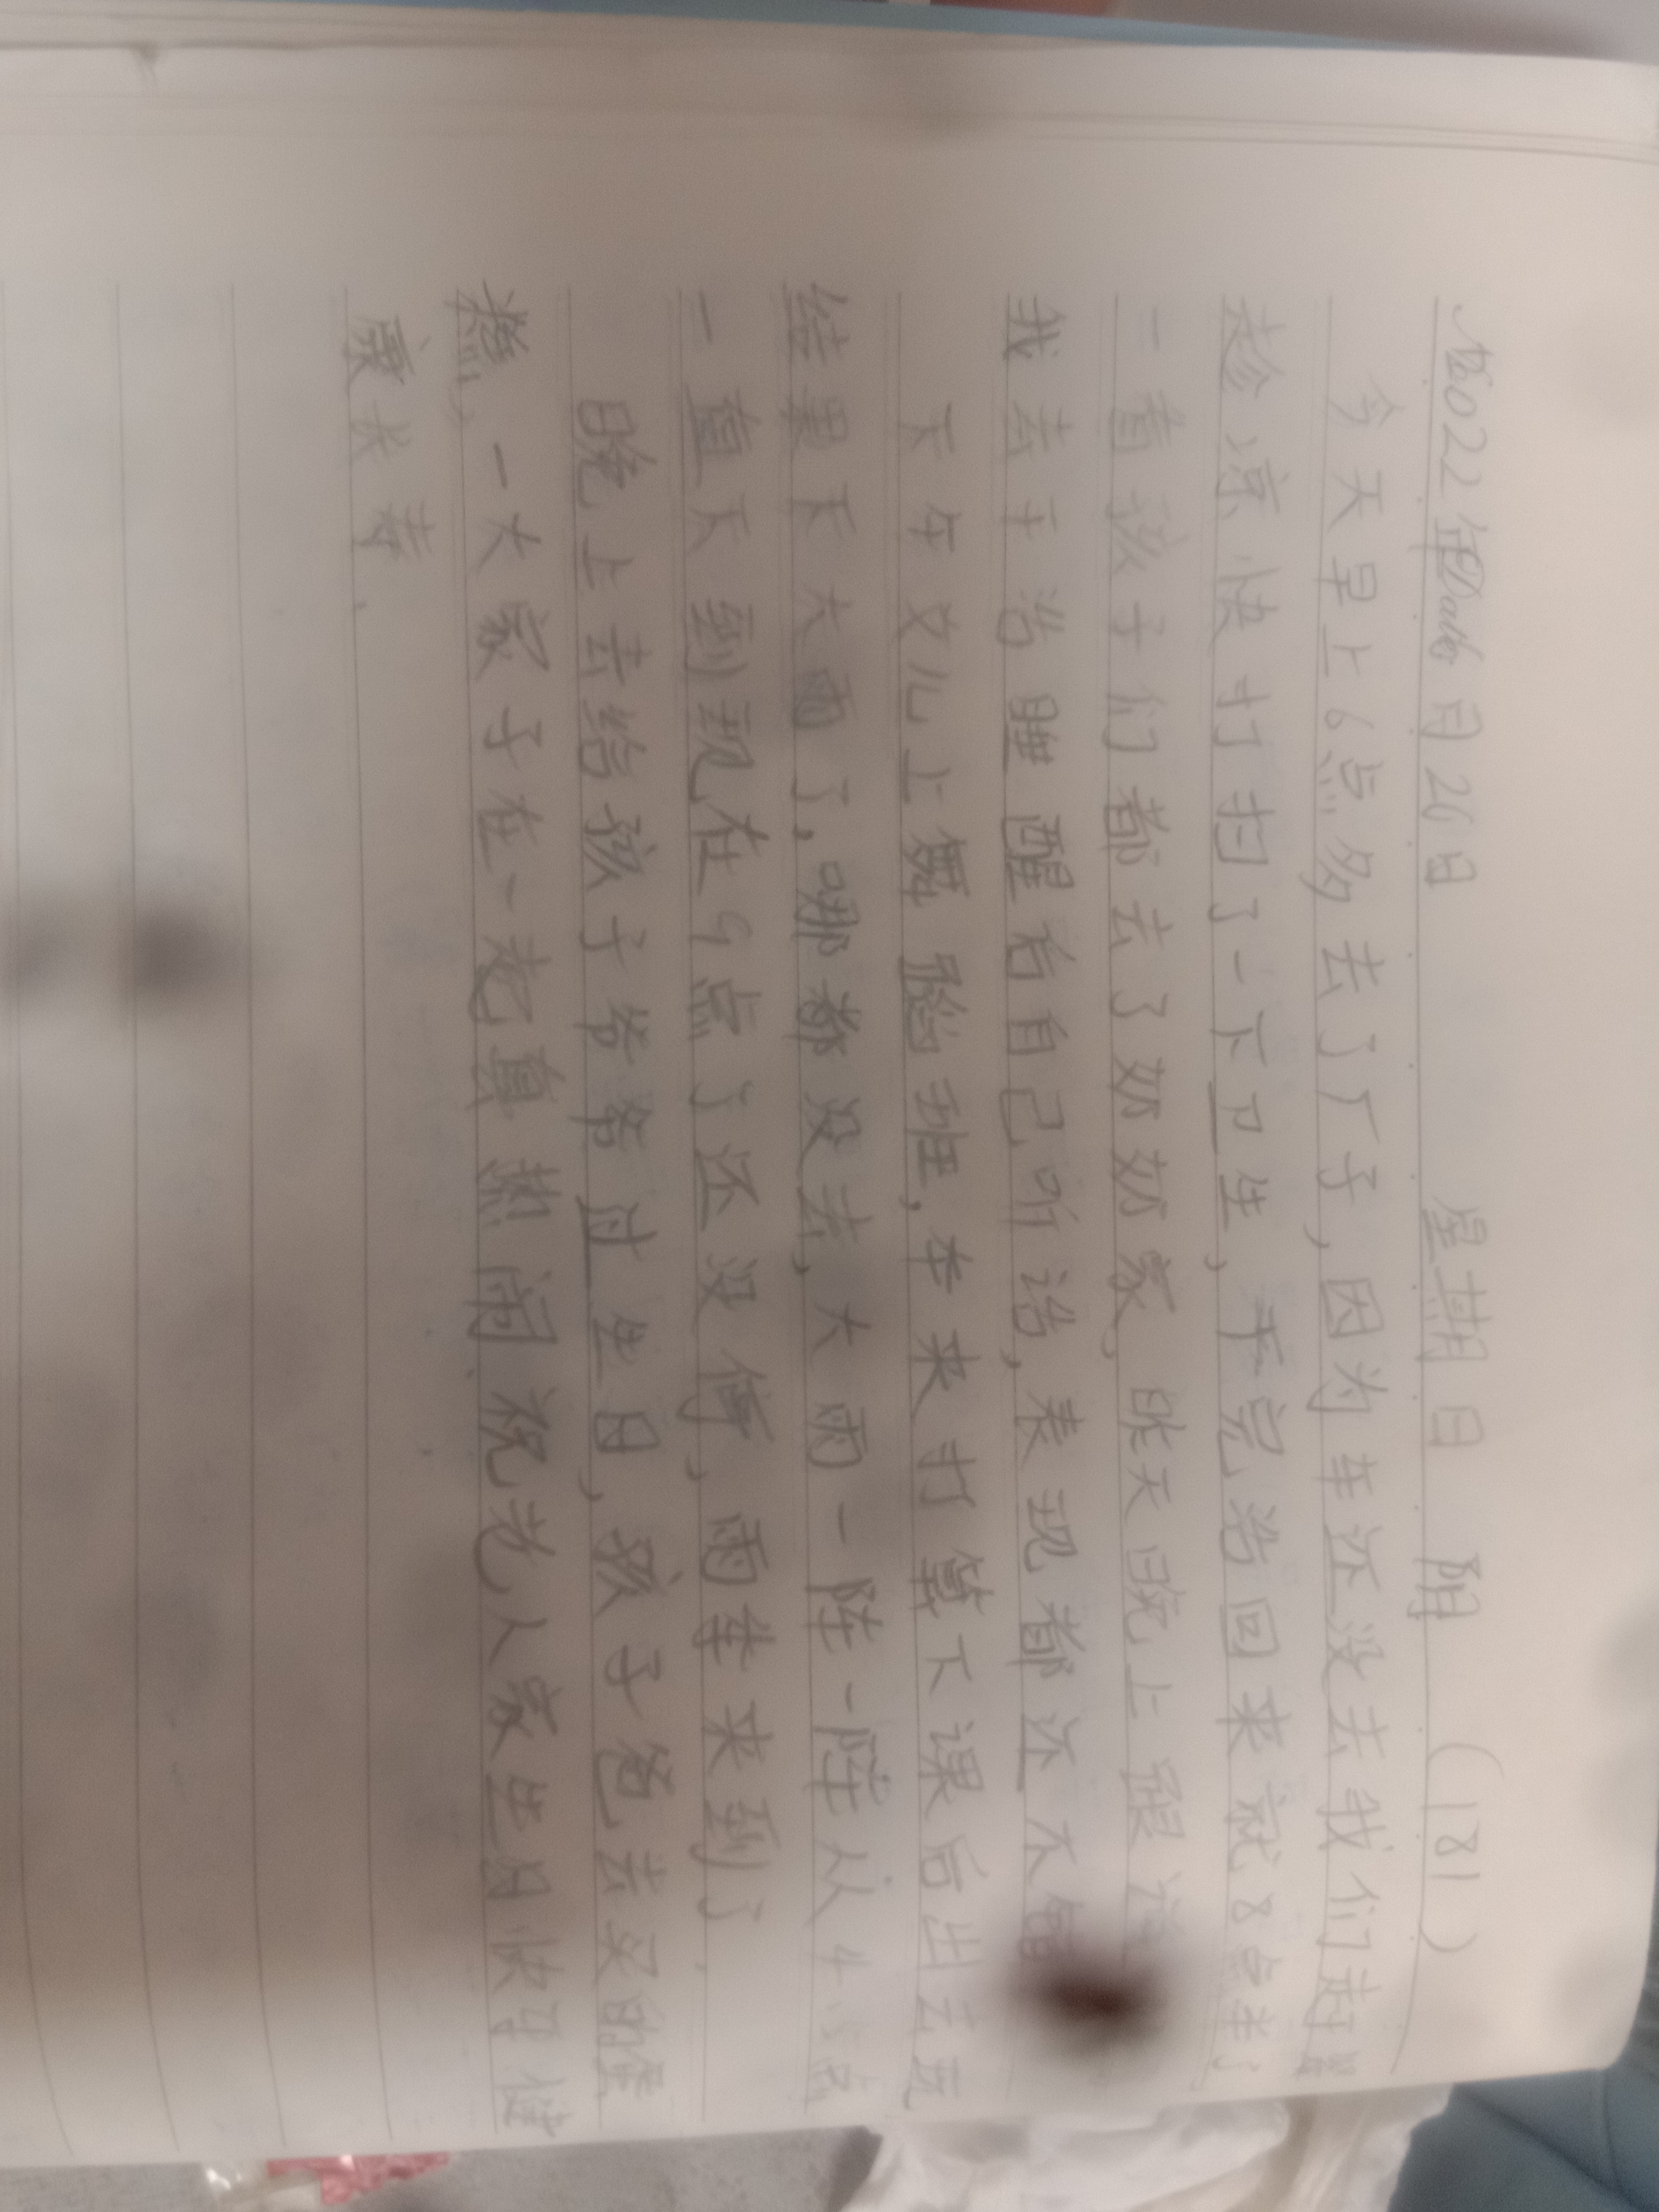 2022年6月26日 星期日 阴 (181)
今天早上6点多去了厂子,因为车还没去我们赶紧
趁凉快打扫了一下卫生,干完活回来就8点半了
一看孩子们都去了奶奶家,昨天晚上跟
我去干活睡醒后自己听话,表现都还不错
下午女儿上舞蹈班,本来打算下课后出去玩
结果下大雨了,哪都没去,大雨一阵一阵从4点
一直下到现在9点了还没停,雨季来到了.
晚上去给孩子爷爷过生日,孩子爸去买的蛋
糕,一大家子在一起真热闹、祝老人家生日快乐健
康长寿.